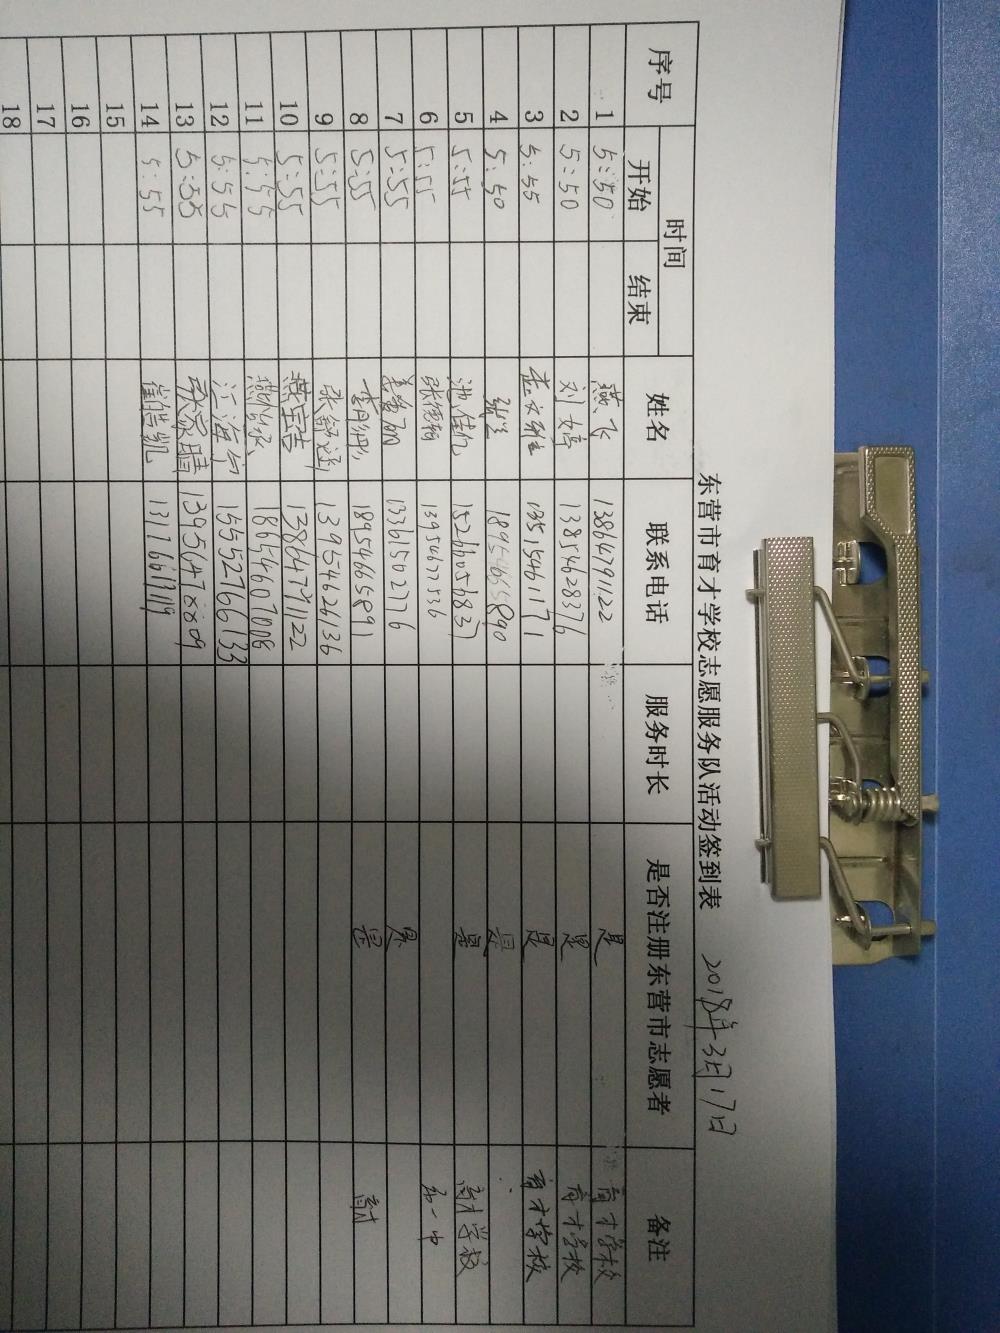 东营市育才学校志愿服务队活动签到表 2018年3月17日
序号 时间 姓名 联系电话 服务时长 是否注册东营市志愿者 备注
开始 结束
1 5:50 燕飞 13864791122 是 育才学校
2 5:50 刘婷 13854628376 是 育才学校
3 5:55 13515461171 是 育才学校
4 5:50 18954665890 是
5 5:55 15266056837 是 育才学校
6 5:55 张德翰 13954677526
7 5:55 13361502776 是
8 5:55 18954665891 是 育才
9 5:55 张舒涵 13954626136
10 5:55 燕宝吉 13864791122
11 5:55 18654607008
12 5:55 江海宁 15552766133
13 5:55
14 5:55 13176617119
15
16
17
18